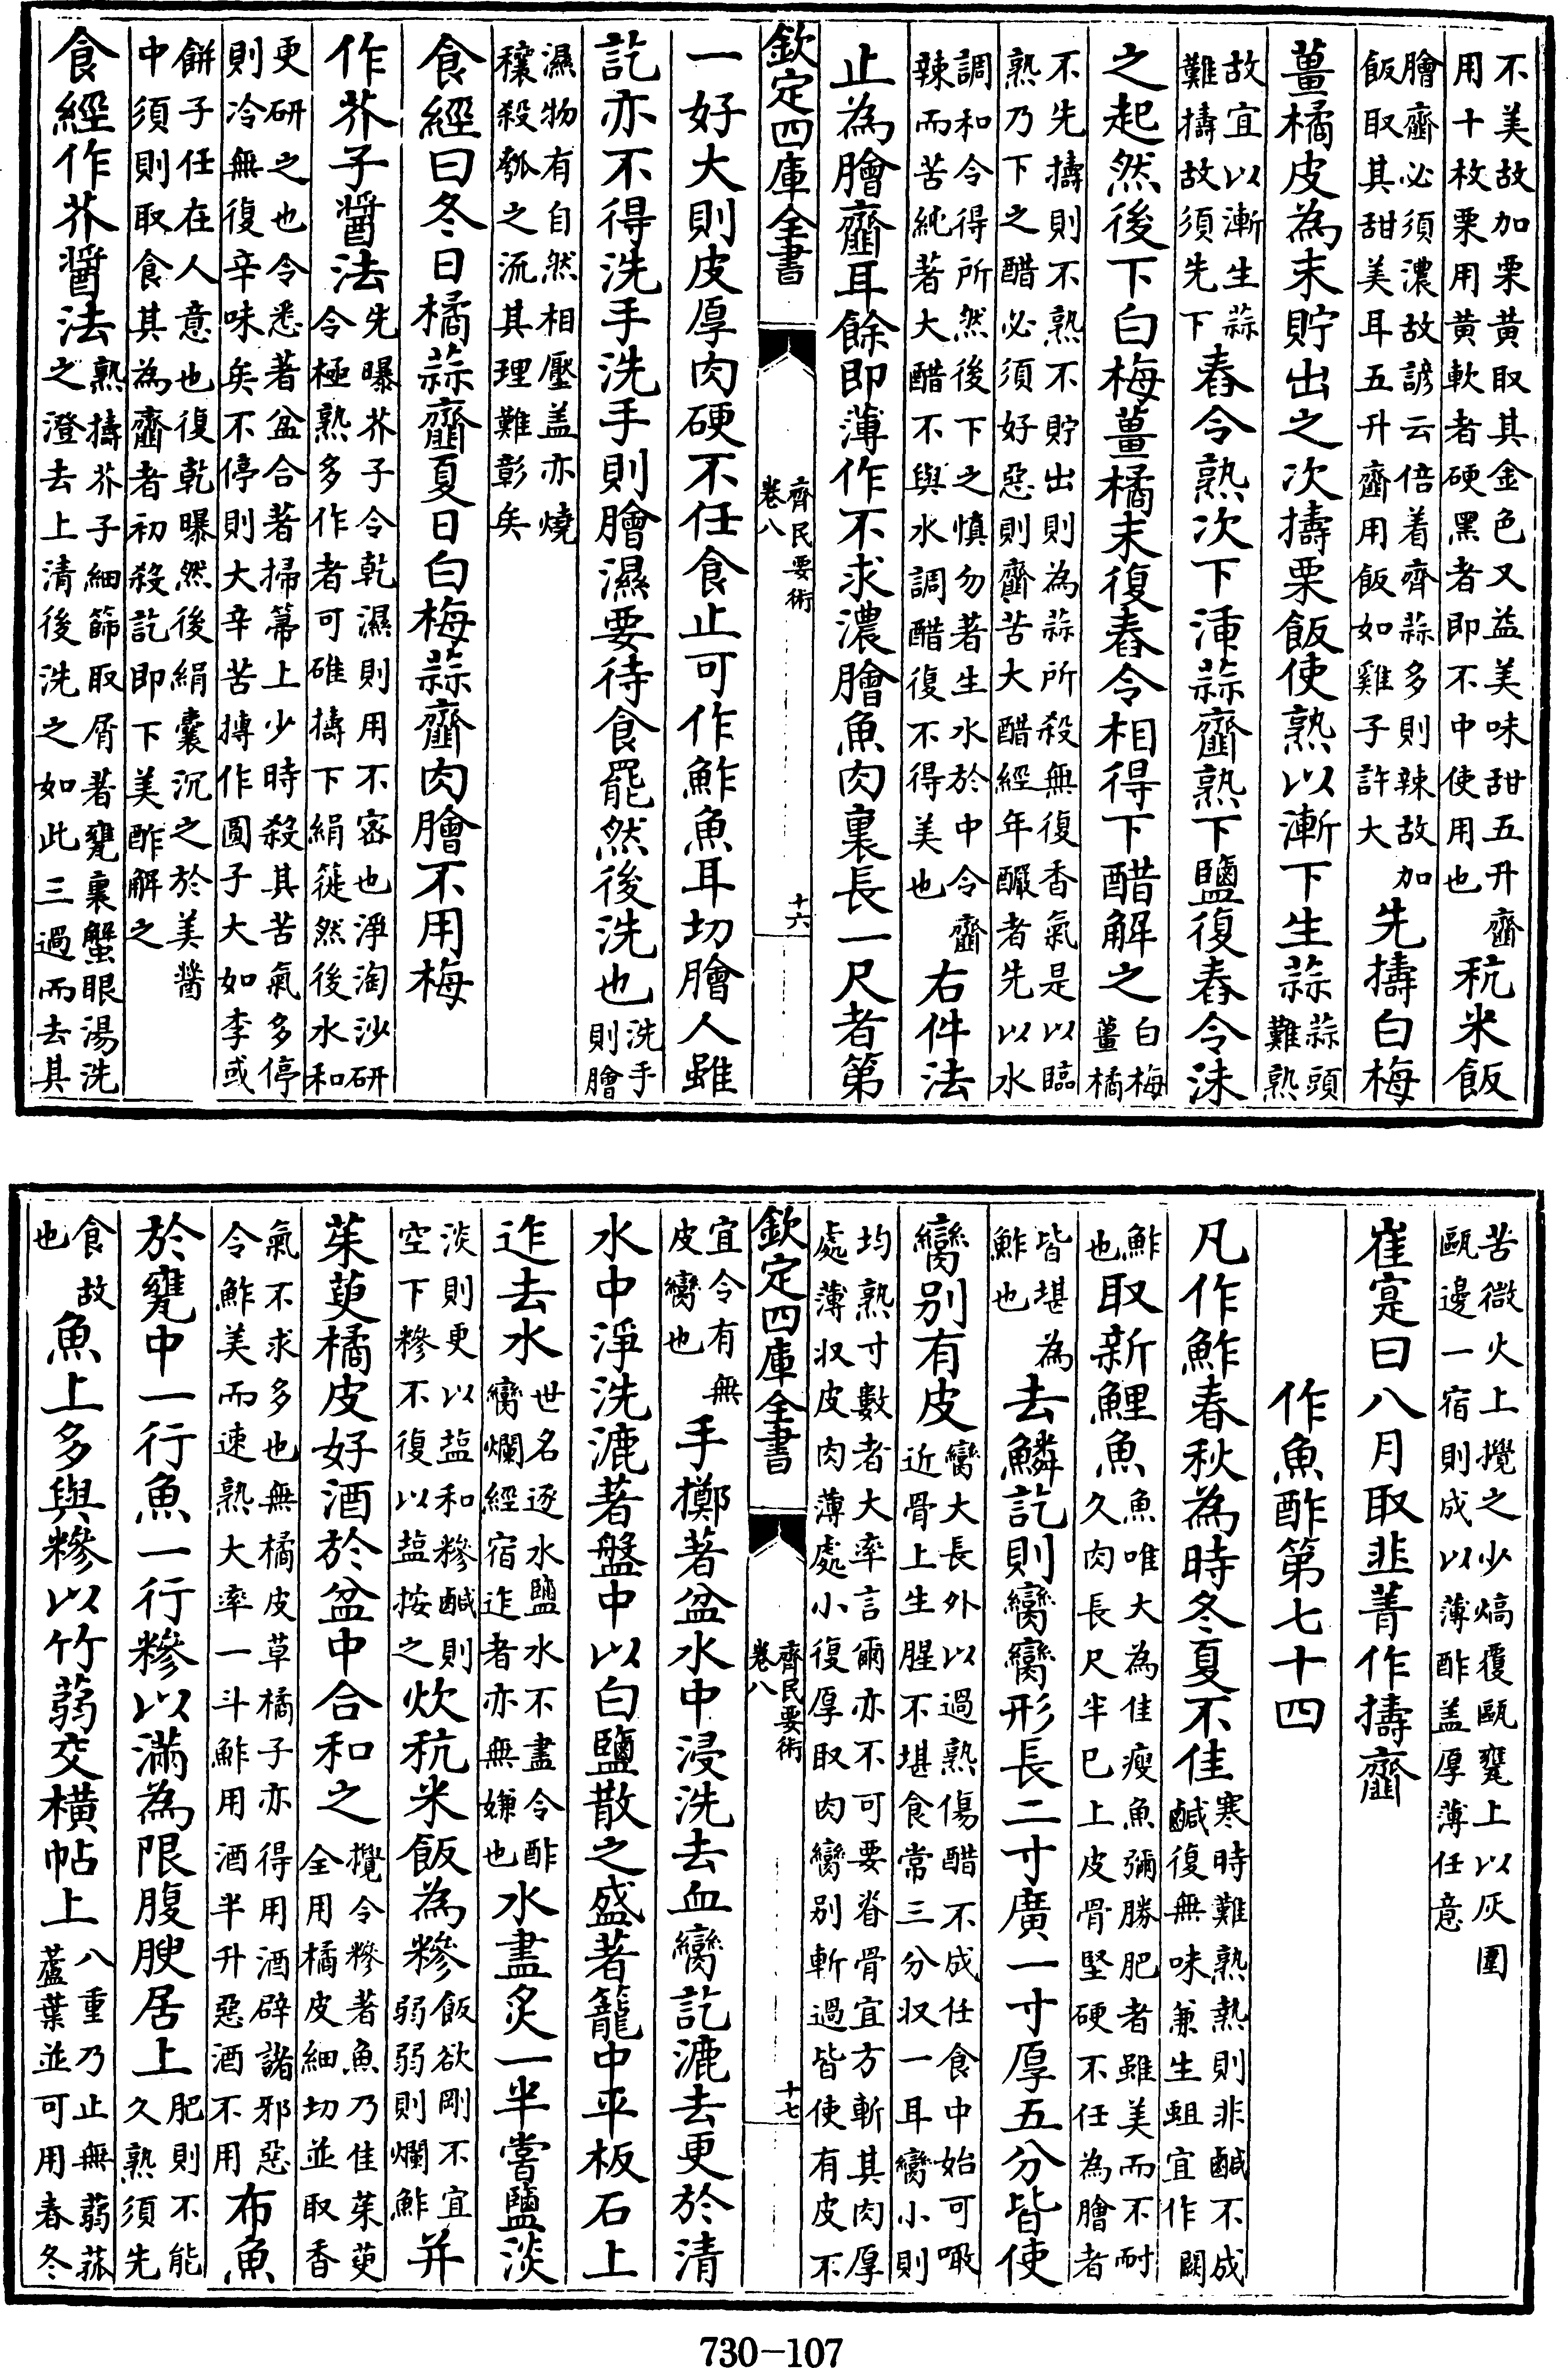 不美故加栗黄取其金色又益美味甜五升齏
用十枚栗用黄軟者硬黒者即不中使用也秔米飯
膾齏必須濃故諺云倍着齊蒜多則辣故加
飯取其甜美耳五升齏用飯如雞子許大先擣白梅
薑橘皮為末貯出之次擣栗飯使熟以漸下生蒜蒜頭
難熟
故宜以漸生蒜
難擣故須先下舂令熟次下湩蒜齏熟下鹽復舂令沫
之起然後下白梅薑橘末復舂令相得下醋解之白梅
薑橘
不先擣則不熟不貯出則為蒜所殺無復香氣是以臨
熟乃下之醋必須好惡則齏苦大醋經年釅者先以水
調和令得所然後下之慎勿著生水於中令齏
辣而苦純著大醋不與水調醋復不得美也右件法
止為膾齏耳餘即薄作不求濃膾魚肉裏長一尺者第
欽定四庫全書
齊民要術
卷八
十六
一好大則皮厚肉硬不任食止可作鮓魚耳切膾人雖
訖亦不得洗手洗手則膾濕要待食罷然後洗也洗手
則膾
濕物有自然相壓盖亦燒
穰殺瓠之流其理難彰矣
食經曰冬日橘蒜齏夏日白梅蒜齏肉膾不用梅
作芥子醤法先曝芥子令乾濕則用不密也淨淘沙研
令極熟多作者可碓擣下絹篵然後水和
更研之也令悉著盆合著掃箒上少時殺其苦氣多停
則冷無復辛味矣不停則大辛苦摶作圓子大如李或
餅子任在人意也復乾曝然後絹囊沉之於美醤
中須則取食其為齏者初殺訖即下美酢解之
食經作芥醤法熟擣芥子細篩取屑著甕裏蟹眼湯洗
之澄去上清後洗之如此三過而去其
苦微火上攪之少熇覆甌甕上以灰圍
甌邊一宿則成以薄酢盖厚薄任意
崔寔曰八月取韭菁作擣齏
作魚酢第七十四
凡作鮓春秋為時冬夏不佳寒時難熟熱則非鹹不成
鹹復無味兼生蛆宜作闕
鮓
也取新鯉魚魚唯大為佳瘦魚彌勝肥者雖美而不耐
久肉長尺半已上皮骨堅硬不任為膾者
皆堪為
鮓也去鱗訖則臠臠形長二寸廣一寸厚五分皆使
臠别有皮臠大長外以過熟傷醋不成任食中始可噉
近骨上生腥不堪食常三分収一耳臠小則
均熟寸數者大率言爾亦不可要脊骨宜方斬其肉厚
處薄収皮肉薄處小復厚取肉臠别斬過皆使有皮不
宜令有無
皮臠也手擲著盆水中浸洗去血臠訖漉去更於清
欽定四庫全書
齊民要術
卷八
十七
水中淨洗漉著盤中以白鹽散之盛著籠中平板石上
迮去水世名逐水鹽水不盡令酢
臠爛經宿迮者亦無嫌也水盡炙一半嘗鹽淡
淡則更以塩和糝鹹則
空下糝不復以塩按之炊秔米飯為糝飯欲剛不宜
弱弱則爛鮓并
茱萸橘皮好酒於盆中合和之攪令糝著魚乃佳茱萸
全用橘皮細切並取香
氣不求多也無橘皮草橘子亦得用酒辟諸邪惡
令鮓美而速熟大率一斗鮓用酒半升惡酒不用布魚
於甕中一行魚一行糝以滿為限腹腴居上肥則不能
久熟須先
食故
也魚上多與糝以竹蒻交橫帖上八重乃止無蒻菰
蘆葉並可用春冬
730-107